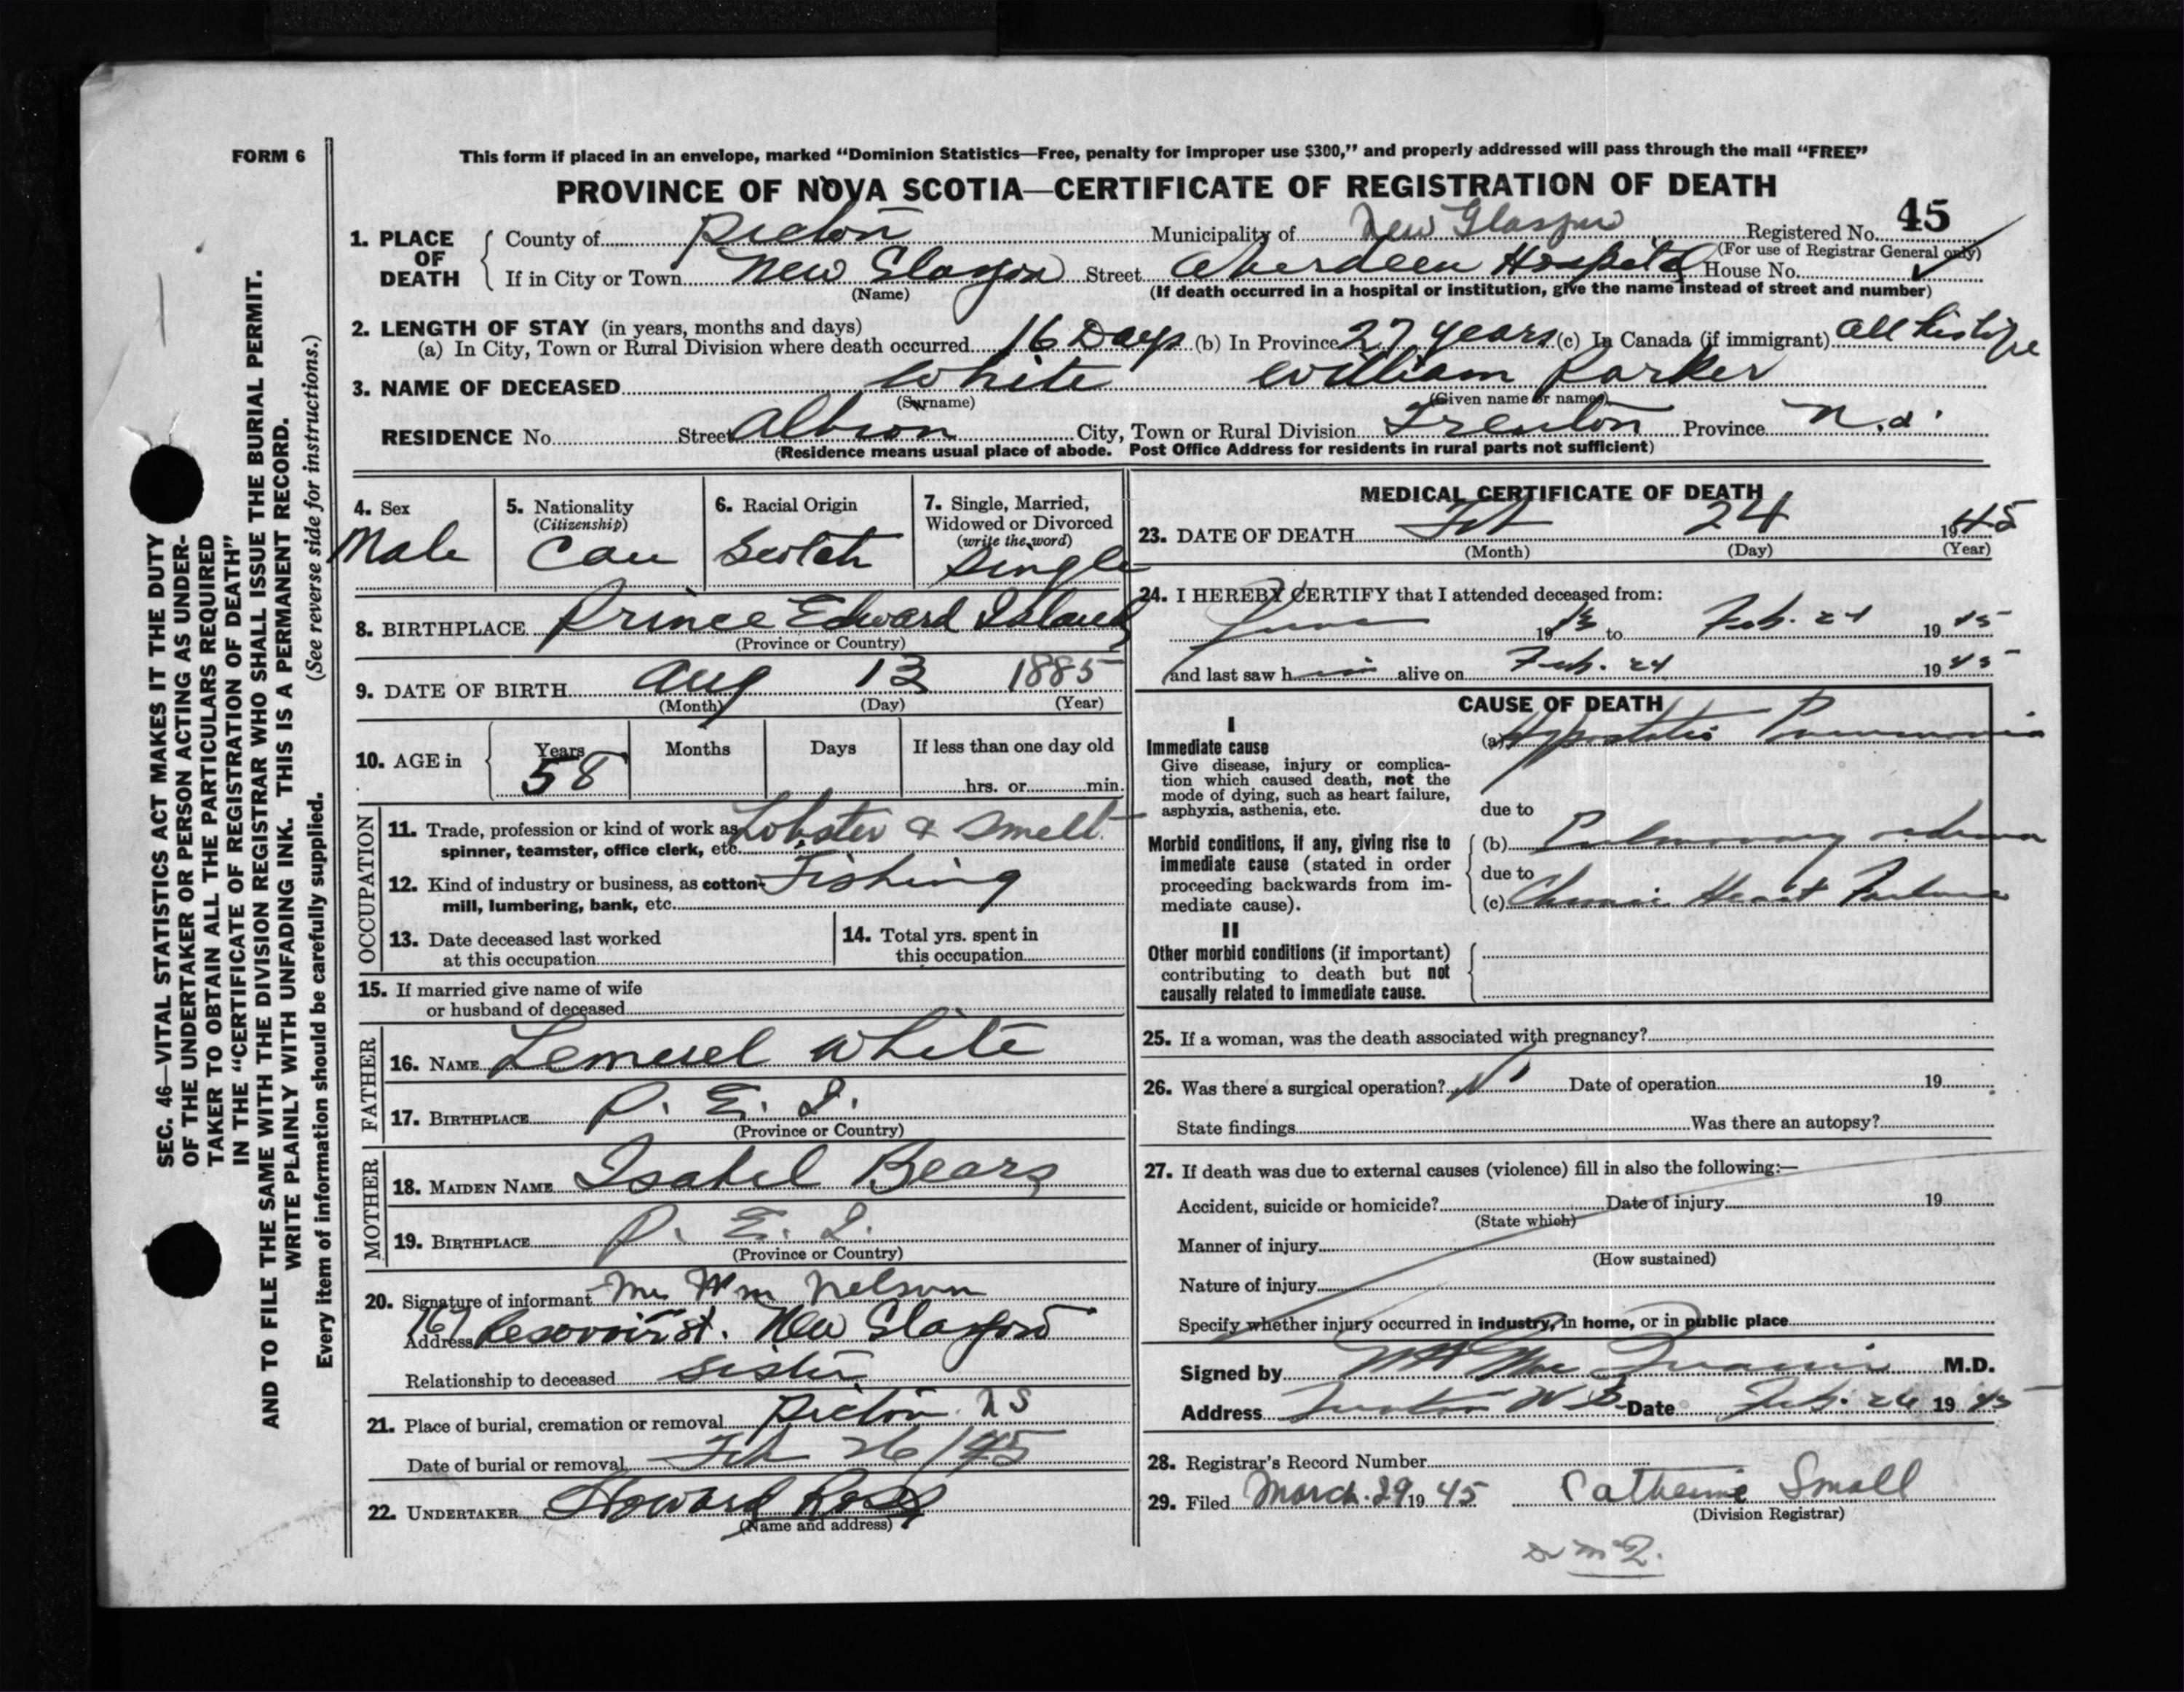 FORM 6
This form if placed in an envelope, marked “Dominion Statistics—Free, penalty for improper use $300,” and properly addressed will pass through the mail “FREE”
PROVINCE OF NOVA SCOTIA—CERTIFICATE OF REGISTRATION OF DEATH
1. PLACE OF DEATH
County of Pictou Municipality of New Glasgow Registered No. 45
(For use of Registrar General only)
If in City or Town New Glasgow Street Aberdeen Hospital House No.
(Name) (If death occurred in a hospital or institution, give the name instead of street and number)
2. LENGTH OF STAY (in years, months and days)
(a) In City, Town or Rural Division where death occurred 16 Days (b) In Province 27 years (c) In Canada (if immigrant) all his life
3. NAME OF DECEASED White William Parker
(Surname) (Given name or names)
RESIDENCE No. Street Albion City, Town or Rural Division Trenton Province N.S.
(Residence means usual place of abode. Post Office Address for residents in rural parts not sufficient)
4. Sex
Male
5. Nationality
(Citizenship)
Can
6. Racial Origin
Scotch
7. Single, Married,
Widowed or Divorced
(write the word)
Single
8. BIRTHPLACE Prince Edward Island
(Province or Country)
9. DATE OF BIRTH Aug 13 1885
(Month) (Day) (Year)
10. AGE in
Years Months Days If less than one day old
58 hrs. or min.
OCCUPATION
11. Trade, profession or kind of work as Lobster & Smelt
spinner, teamster, office clerk, etc.
12. Kind of industry or business, as cotton- Fishing
mill, lumbering, bank, etc.
13. Date deceased last worked
at this occupation
14. Total yrs. spent in
this occupation
15. If married give name of wife
or husband of deceased
FATHER
16. NAME Lemuel White
17. BIRTHPLACE P. E. I.
(Province or Country)
MOTHER
18. MAIDEN NAME Isabel Bears
19. BIRTHPLACE P. E. I.
(Province or Country)
20. Signature of informant Mrs Wm Nelson
Address 767 Resovoir st. New Glasgow
Relationship to deceased sister
21. Place of burial, cremation or removal Pictou N S
Date of burial or removal Feb 26/45
22. UNDERTAKER Howard Ross
(Name and address)
MEDICAL CERTIFICATE OF DEATH
23. DATE OF DEATH Feb 24 1945
(Month) (Day) (Year)
24. I HEREBY CERTIFY that I attended deceased from:
19 to Feb. 24 1945
and last saw him alive on Feb. 24 1945
CAUSE OF DEATH
I
Immediate cause
Give disease, injury or complica-
tion which caused death, not the
mode of dying, such as heart failure,
asphyxia, asthenia, etc.
(a) Hypostatic Pneumonia
due to
Morbid conditions, if any, giving rise to
immediate cause (stated in order
proceeding backwards from im-
mediate cause).
(b) Pulmonary edema
due to
(c) Chronic Heart Failure
II
Other morbid conditions (if important)
contributing to death but not
causally related to immediate cause.
25. If a woman, was the death associated with pregnancy?
26. Was there a surgical operation? No Date of operation 19
State findings Was there an autopsy?
27. If death was due to external causes (violence) fill in also the following:—
Accident, suicide or homicide? Date of injury 19
(State which)
Manner of injury
(How sustained)
Nature of injury
Specify whether injury occurred in industry, in home, or in public place
Signed by M.D.
Address Trenton N.S. Date Feb. 26 1945
28. Registrar's Record Number
29. Filed March 29 1945 Catherine Small
(Division Registrar)
SEC. 46—VITAL STATISTICS ACT MAKES IT THE DUTY
OF THE UNDERTAKER OR PERSON ACTING AS UNDER-
TAKER TO OBTAIN ALL THE PARTICULARS REQUIRED
IN THE “CERTIFICATE OF REGISTRATION OF DEATH”
AND TO FILE THE SAME WITH THE DIVISION REGISTRAR WHO SHALL ISSUE THE BURIAL PERMIT.
WRITE PLAINLY WITH UNFADING INK. THIS IS A PERMANENT RECORD.
Every item of information should be carefully supplied. (See reverse side for instructions.)